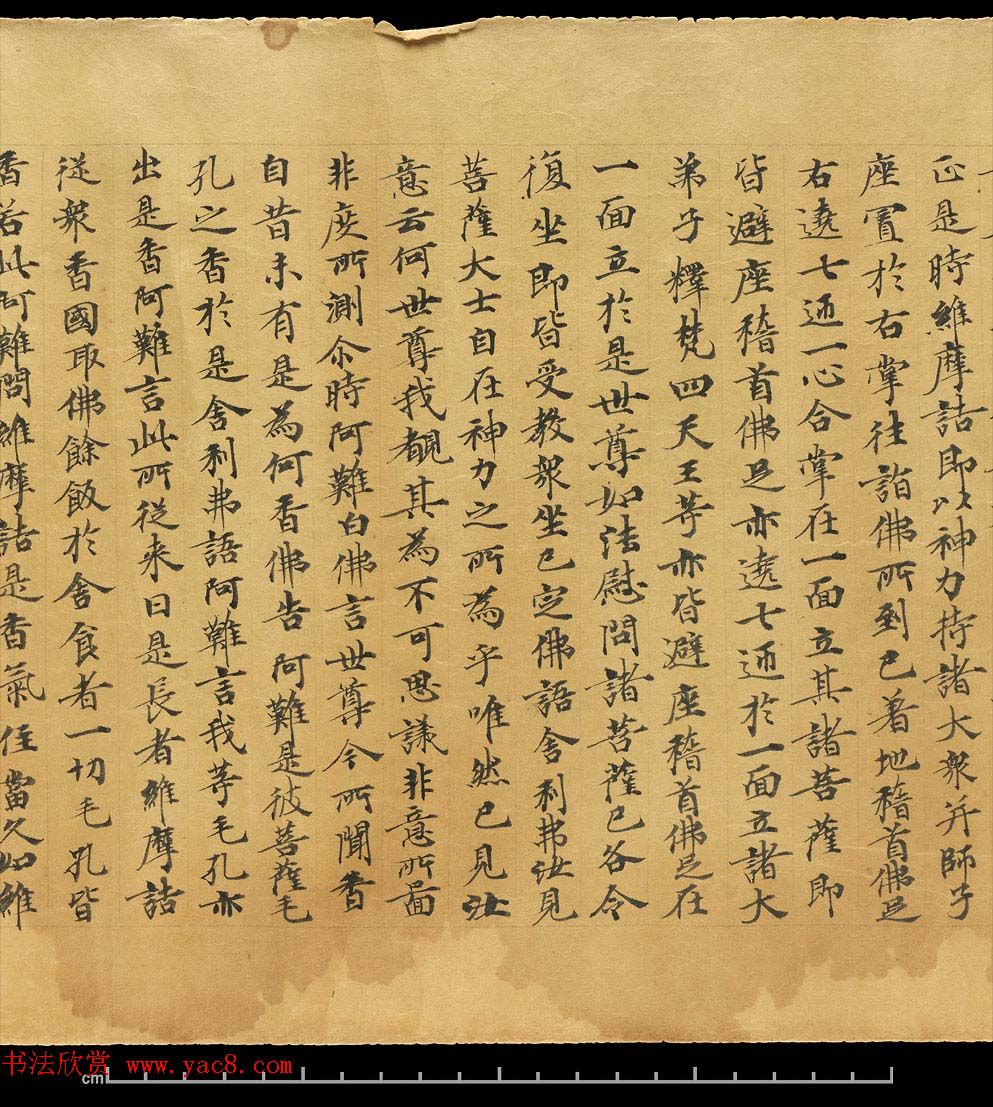 正是時維摩詰即以神力持諸大衆并師子
座置於右掌往詣佛所到已著地稽首佛足
右遶七迊一心合掌在一面立其諸菩薩即
皆避座稽首佛足亦遶七迊於一面立諸大
弟子釋梵四天王等亦皆避座稽首佛足在
一面立於是世尊如法慰問諸菩薩已各令
復坐即皆受教衆坐已定佛語舍利弗汝見
菩薩大士自在神力之所為乎唯然已見汝
意云何世尊我覩其為不可思議非意所啚
非度所測尒時阿難白佛言世尊今所聞香
自昔未有是為何香佛告阿難是彼菩薩毛
孔之香於是舍利弗語阿難言我等毛孔亦
出是香阿難言此所從来曰是長者維摩詰
從衆香國取佛餘飯於舍食者一切毛孔皆
香若此阿難問維摩詰是香氣住當久如維
书法欣赏 www.yac8.com
cm